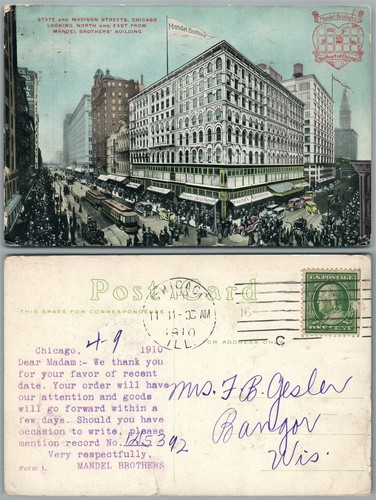 STATE AND MADISON STREETS, CHICAGO
LOOKING NORTH AND EAST FROM
MANDEL BROTHERS' BUILDING
Mandel Brothers
Mandel Brothers
Post Card
THIS SPACE FOR CORRESPONDENCE
OR ADDRESS ON
CHICAGO
APR
11-30 AM
1910
ILL.
16
C
U.S. POSTAGE
4-9
Chicago, 1910
Dear Madam:- We thank you
for your favor of recent
date. Your order will have
our attention and goods
will go forward within a
few days. Should you have
occasion to write, please
mention record No. 125392
Very respectfully,
Form L. MANDEL BROTHERS
Mrs. F. B. Gesler
Bangor
Wis.